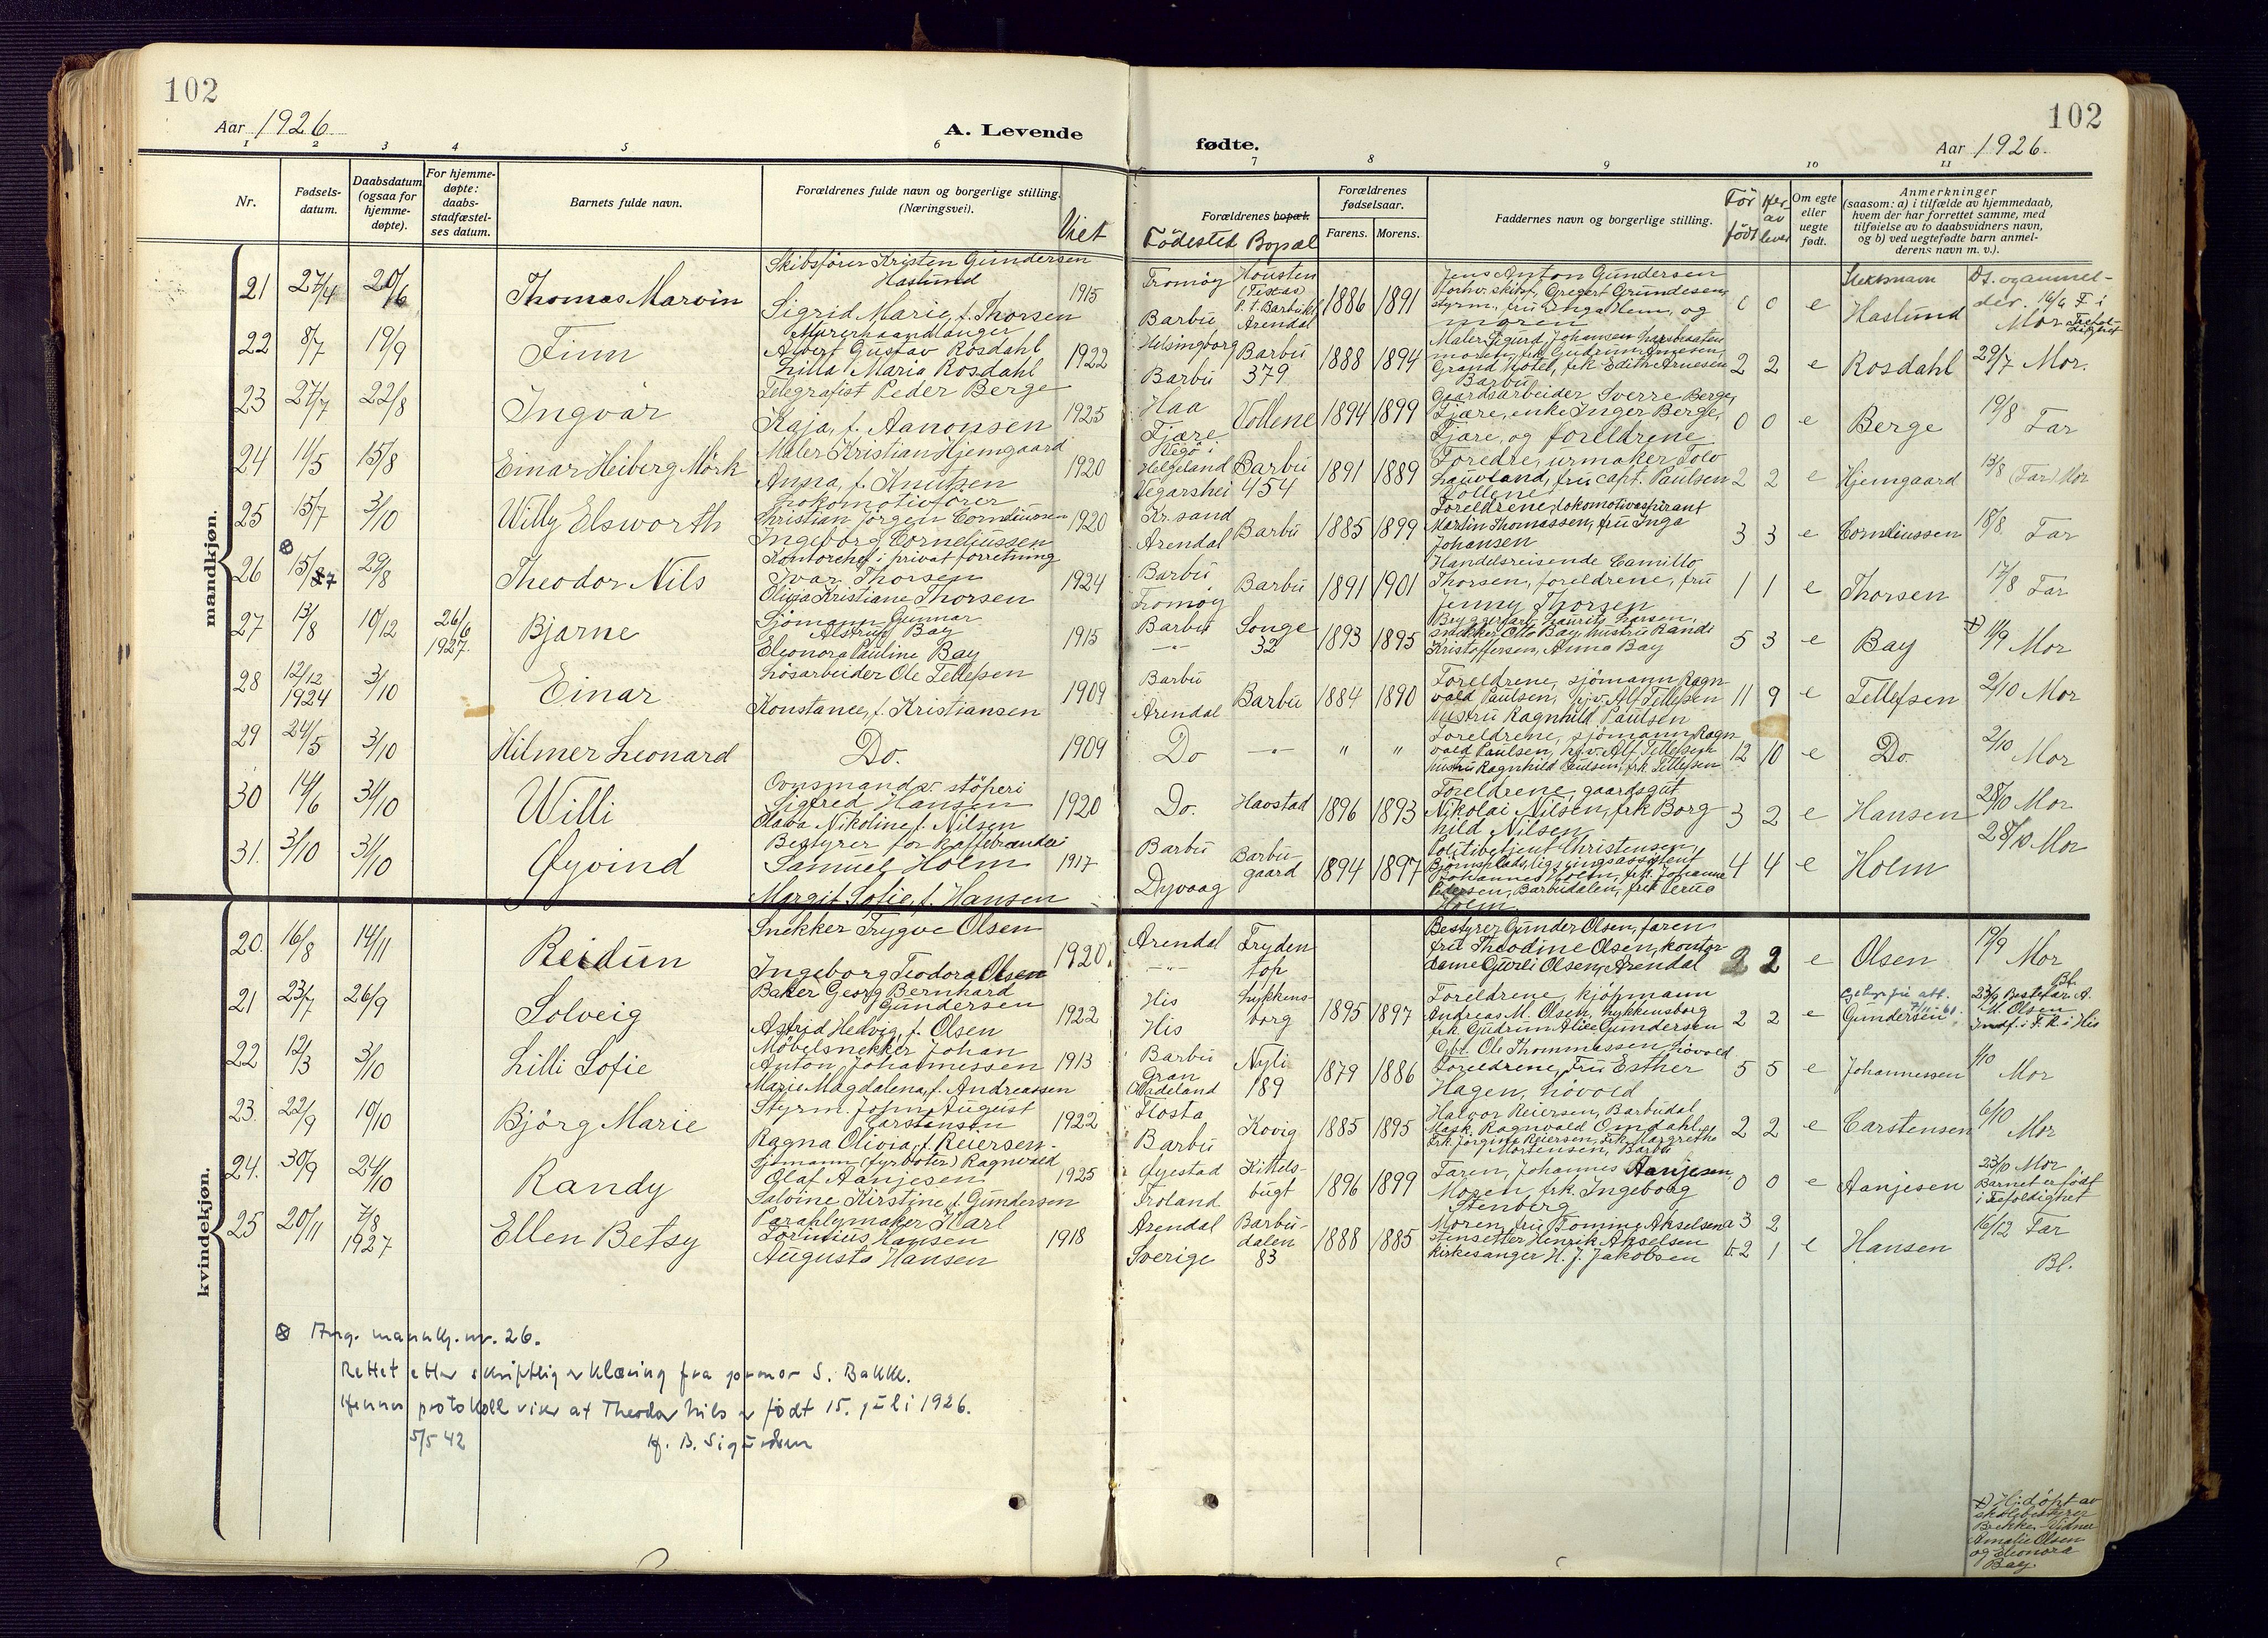 102
102
Aar 1926.
A. Levende
fødte.
Aar 1926.
1 2 3 4 5 6 7 8 9 10 11
Nr.
Fødsels-
datum.
Daabsdatum
(ogsaa for
hjemme-
døpte).
For hjemme-
døpte:
daabs-
stadfæstel-
ses datum.
Barnets fulde navn.
Forældrenes fulde navn og borgerlige stilling.
(Næringsvei).
Viet
Forældrenes bopæl.
Födested Bopæl
Forældrenes
fødselsaar.
Farens. Morens.
Faddernes navn og borgerlige stilling.
Før
født
Her-
av
lever
Om egte
eller
uegte
født.
Anmerkninger
(saasom: a) i tilfælde av hjemmedaab,
hvem der har forrettet samme, med
tilføielse av to daabsvidners navn,
og b) ved uegtefødte barn anmel-
derens navn m. v.).
mandkjøn.
21 27/4 20/6 Thomas Marvin
Skibsfører Kristen Gundersen
Haslund
Sigrid Marie, f. Thorsen
1915
Tromøy
Barbu
Housten
(Texas)
p. t. Barbu
Arendal
1886 1891
Jens Anton Gundersen
forhv. skibsf., Gregert Gundesen,
styrm., fru Inga Hem, og
moren
0 0 e
Slektsnavn
Haslund
Mor
22 8/7 19/9 Finn
Murerhaandlanger
Albert Gustav Rosdahl
Lilla Maria Rosdahl
1922
Helsingborg
Barbu
Barbu
379
1888 1894
Maler Sigurd Johansen
moren, frk. Gudrun Arnesen,
Grand Hotel, frk. Edith Arnesen
Barbu
2 2 e Rosdahl 29/7 Mor.
23 27/7 22/8 Ingvar
Telegrafist Peder Berge
Kaja, f. Aanonsen
1925
Haa
Fjære
Vollene
1894 1899
Gaardsarbeider Sverre Berge,
Fjære, enke Inger Berge,
Fjære, og foreldrene
0 0 e Berge 19/8 Far
24 11/5 15/8 Einar Heiberg Mörk
Maler Kristian Hjemgaard
Anna, f. Knutsen
1920
Helgeland
Vegarshei
Barbu
454
1891 1889
Foredre, urmaker Tolv
Lauvland, fru capt. Paulsen
Vollene
2 2 e Hjemgaard 13/8 (Far) Mor
25 15/7 3/10 Willy Elsworth
Lokomotivfører
Christian Jörgen Corneliussen
Ingeborg Corneliussen
1920
Kr.sand
Arendal
Barbu
1885 1899
Foreldrene, lokomotivaspirant
Martin Thomassen, fru Inga
Johansen
3 3 e Corneliussen 18/8 Far
26 15/7 29/8 Theodor Nils
Kontorchef i privat forretning
Ivar Thorsen
Olivia Kristiane Thorsen
1924
Barbu
Tromøy
Barbu
1891 1901
Handelsreisende Camillo
Thorsen, foreldrene, fru
Jenny Thorsen
1 1 e Thorsen 17/8 Far
27 13/8 10/12 26/6 1927. Bjarne
Sjömann Gunnar
Alstrup Bay
Eleonora Pauline Bay
1915
Barbu
—"—
Songe
32
1893 1895
Byggerfart. Laurits Larsen,
snekker Otto Bay, hustru Randi
Kristoffersen, Anna Bay
5 3 e Bay 11/9 Mor
28 12/12 1924 3/10 Einar
Løsarbeider Ole Tellefsen
Konstance, f. Kristiansen
1909
Barbu
Arendal
Barbu
1884 1890
Foreldrene, sjömann Ragn
vald Paulsen, hj.v. Alf Tellefsen
hustru Ragnhild Paulsen
11 9 e Tellefsen 2/10 Mor
29 24/5 3/10 Hilmer Leonard
Do. 1909 Do —"— " "
Foreldrene, sjömann Ragn
vald Paulsen, hj.v. Alf Tellefsen
hustru Ragnhild Paulsen, frk. Tellefsen
12 10 e Do. 2/10 Mor
30 14/6 31/10 Willi
Ovnsmand v. støperi
Sigfred Hansen
Olava Nikoline f. Nilsen
1920
Do.
Havstad
1896 1893
Foreldrene, gaardsgut
Nikolai Nilsen, frk Borg
hild Nilsen
3 2 e Hansen 28/10 Mor
31. 3/10 31/10 Øyvind
Bestyrer for kaffebrænderi
Samuel Holm
Margit Sofie, f. Hansen
1917
Barbu
Dyvaag
Barbu
gaard
1894 1897
Politibetjent Christensen,
Bjørnsplads, ligningsassistent
Johannes Holm, frk. Johanna
Pedersen, Barbudalen, frk Verna
Holm
4 4 e Holm 28/10 Mor
kvindekjøn.
20. 16/8 14/11 Reidun
Snekker Trygve Olsen
Ingeborg Teodora Olsen
1920.
Arendal
—"—
Fryden
top
Bestyrer Gunder Olsen, faren
fru Theodine Olsen, kontor
dame Gurli Olsen, Arendal
2 2 e Olsen 19/9 Mor
21 23/7 26/9 Solveig
Baker Georg Bernhard
Gundersen
Astrid Hedvig, f. Olsen
1922
His
His
Lykkens-
borg
1895 1897
Foreldrene, kjøpmann
Andreas M. Olsen, Lykkensborg
frk. Gudrun Alice Gundersen
2 2 e
Gundersen
23/9 Bestefar A.
M. Olsen
Indf. i F. R i His
Bl.
22 12/3 3/10 Lilli Sofie
Möbelsnekker Johan
Anton Johannessen
Marie Magdalena, f. Andreassen
1913
Barbu
Gran
Hadeland
Nyli
189
1879 1886
Gbr. Ole Thommassen Løvold
Foreldrene, Fru Esther
Hagen, Løvold
5 5 e Johannessen 1/10 Mor
23. 22/9 10/10 Björg Marie
Styrm. John August
Carstensen
Ragna Olivia, f. Reiersen
1922
Flosta
Barbu
Kovig
1885 1895
Halvor Reiersen, Barbudal
Mask. Ragnvald Omdahl
Frk Jørgine Reiersen, Frk. Margrethe
Mortensen, Barbu
2 2 e Carstensen 6/10 Mor
24. 30/9 24/10 Randy
Sjømann (fyrbøter) Ragnvald
Olaf Aanjesen
Salvine Kirstine f. Gundersen
1925
Øyestad
Froland
Kittels-
bugt
1896 1899
Faren, Johannes Aanjesen,
Moren, frk. Ingeborg
Stenberg
0 0 e Aanjesen
23/10 Mor
Barnet er født
i Trefoldighet
25 20/11 7/8 1927 Ellen Betsy
Paraplymaker Karl
Tornius Hansen
Augusta Hansen
1918
Arendal
Sverige
Barbu-
dalen
83
1888 1885
Moren, fru Tomme Akselsen
stensetter Henrik Akselsen
kirkesanger H. J. Jakobsen
a 3 2
b. 2 1 e Hansen 16/12 Far
Bl.
⊗ Ang. mannkj. nr. 26.
Rettet etter skriftlig erklæring fra jormor S. Bakke.
Hennes protokoll viser at Theodor Nils er født 15. juli 1926.
5/5 42 Kf. B. Sigurdsen
x) Hj.døpt av
skolebestyrer
Brekke. Vidner
Amalie Olsen
og Eleonora
Bay.